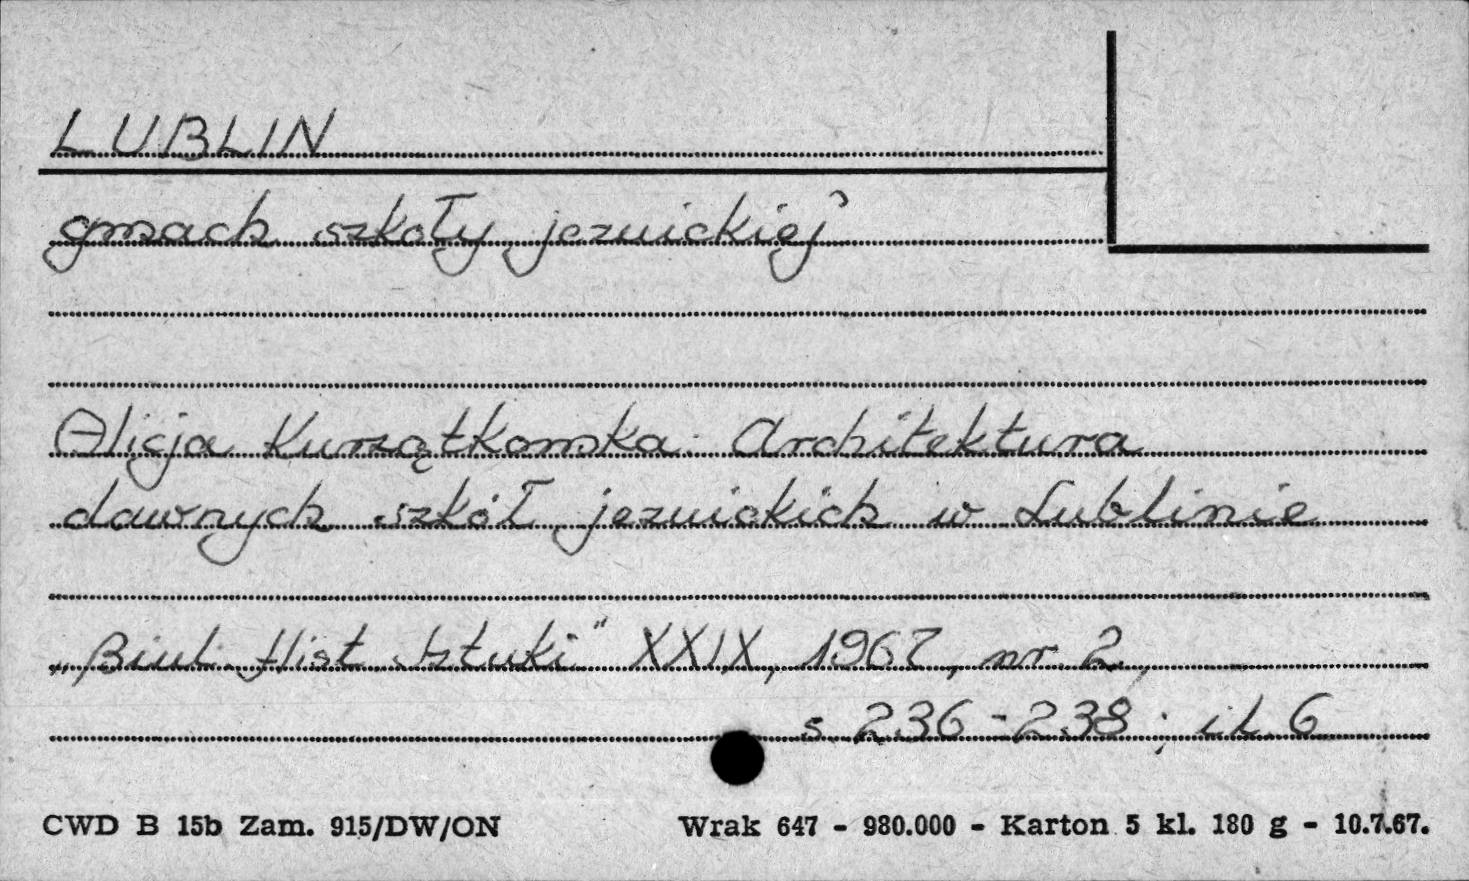 LUBLIN
gmach szkoły jezuickiej
Alicja Kurzątkowska. Architektura
dawnych szkół jezuickich w Lublinie
„Biul. Hist. Sztuki" XXIX, 1967, nr 2,
s. 236-238; il. 6
CWD B 15b Zam. 915/DW/ON Wrak 647 - 980.000 - Karton 5 kl. 180 g - 10.7.67.